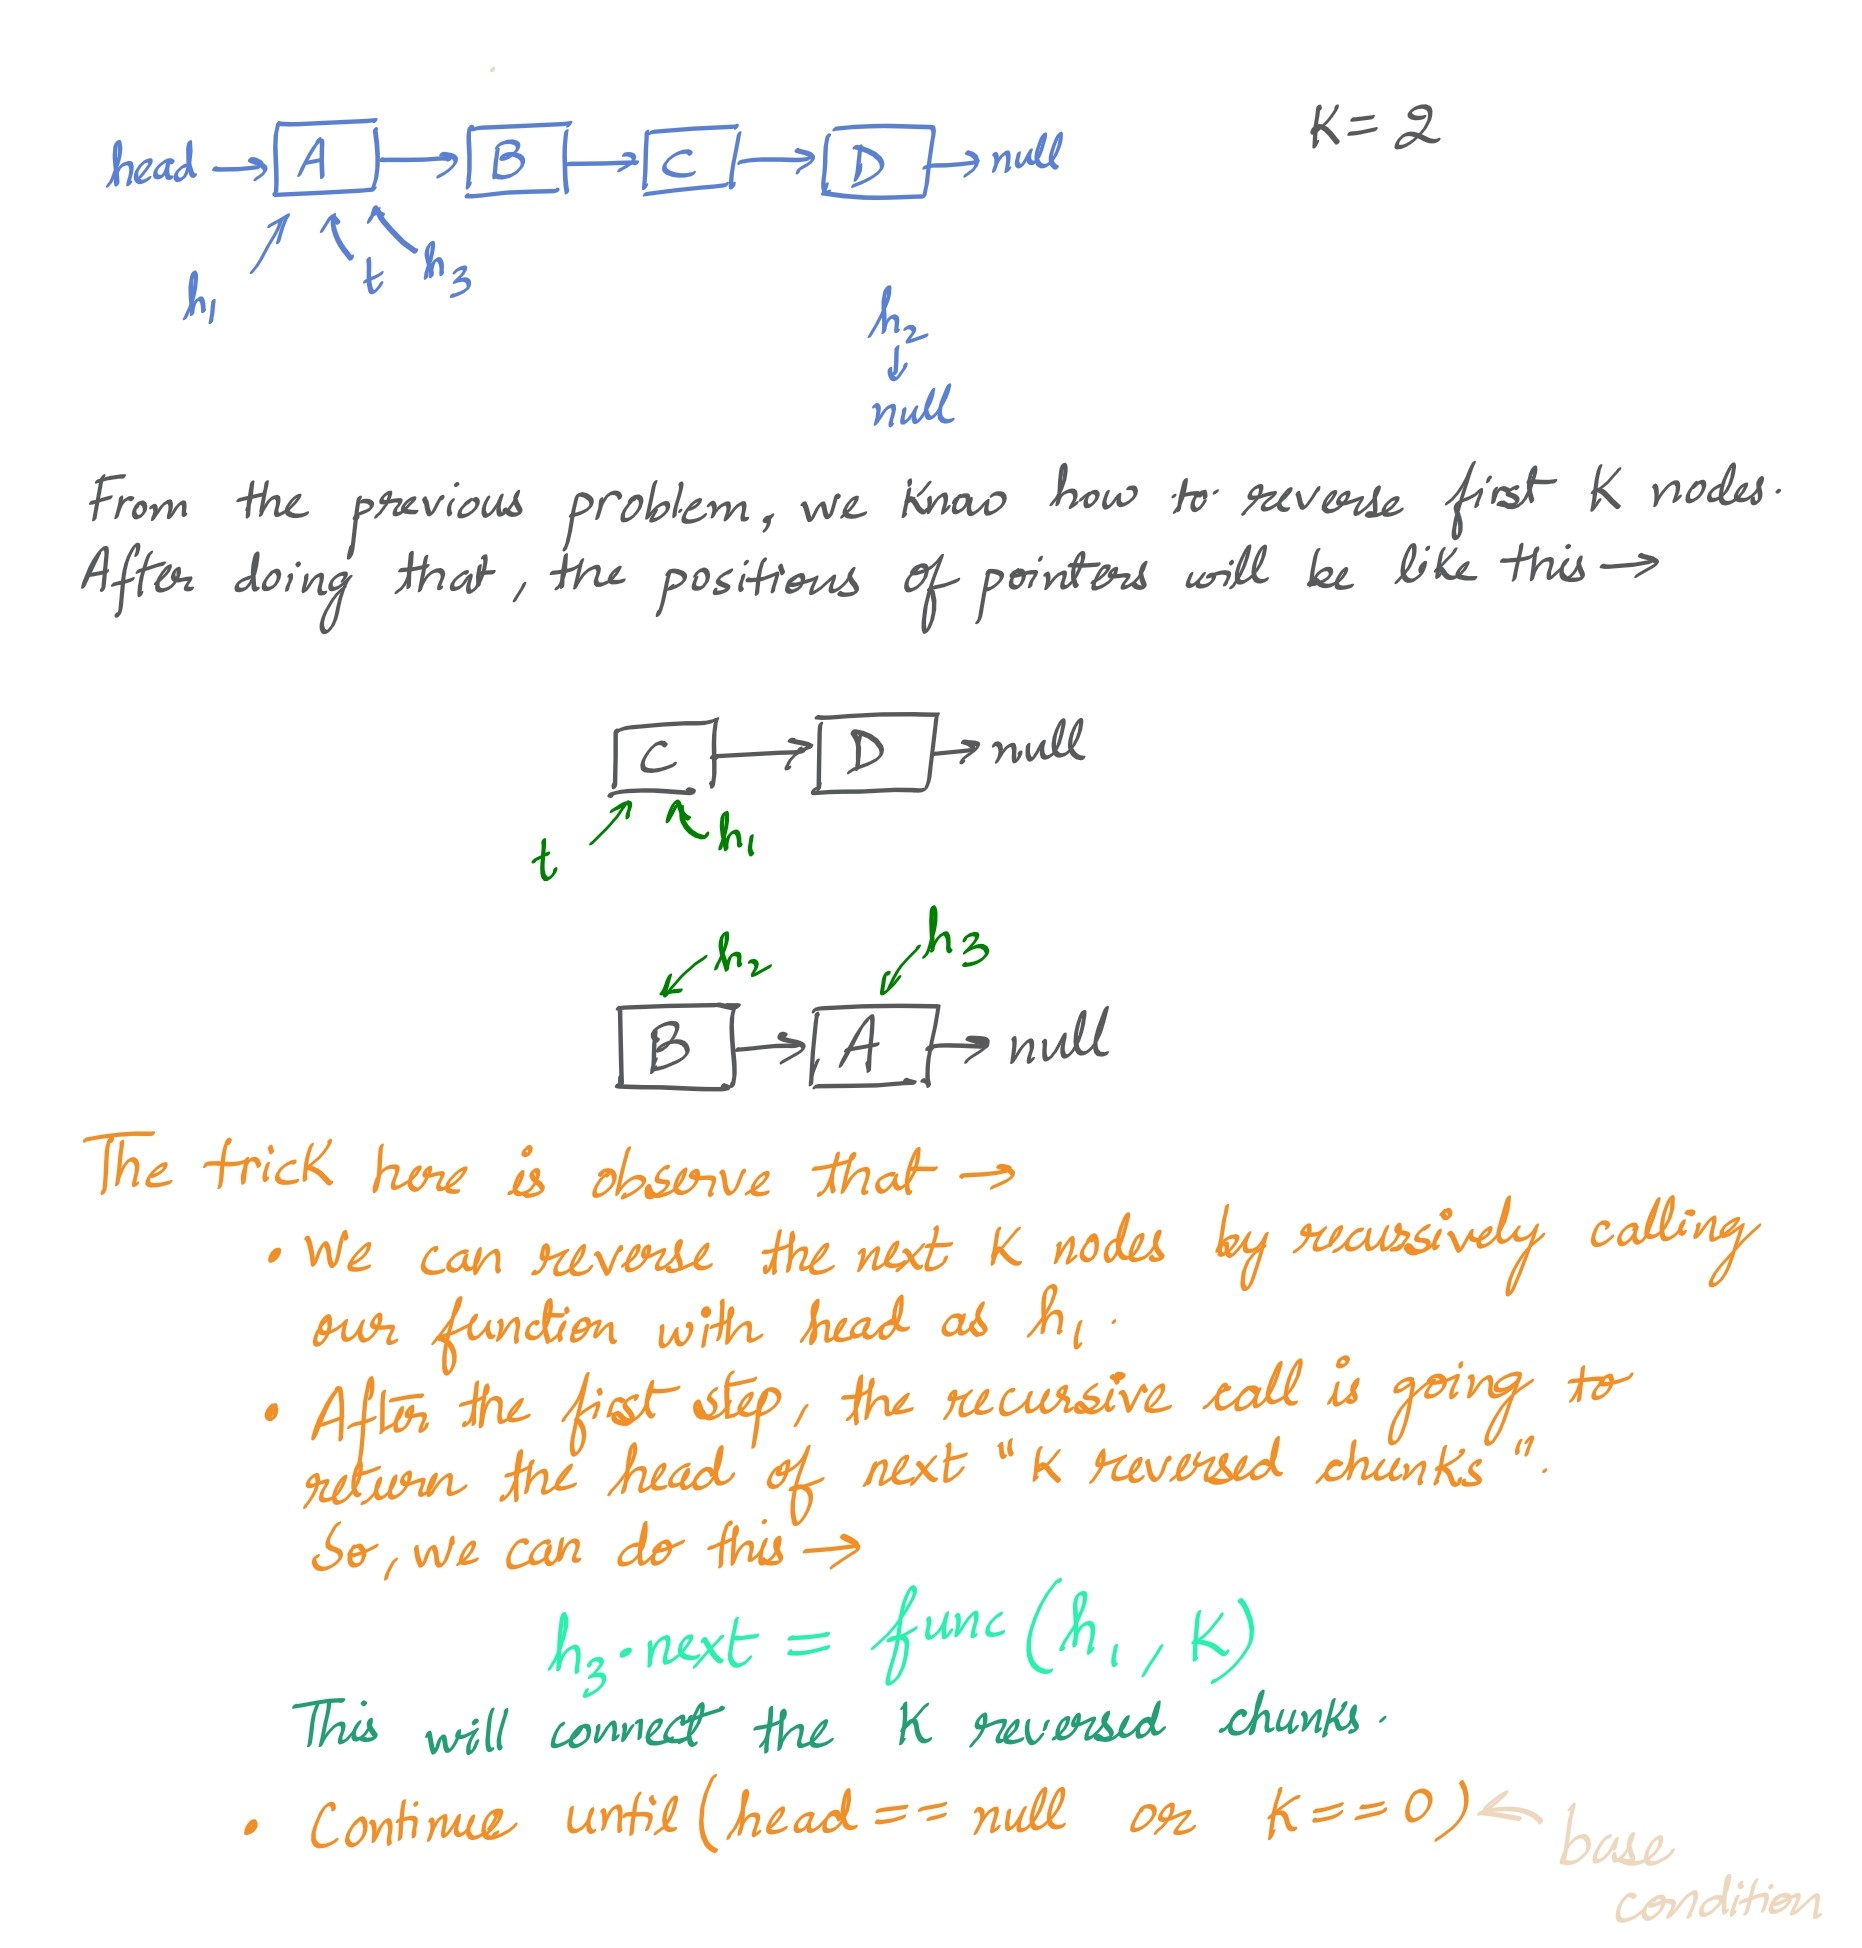 K = 2
head → A → B → C → D → null
h₁ t h₃
h₂
↓
null
From the previous problem, we know how to reverse first K nodes.
After doing that, the positions of pointers will be like this →
C → D → null
t h₁
h₂ h₃
B → A → null
The trick here is observe that →
• We can reverse the next K nodes by recursively calling
our function with head as h₁.
• After the first step, the recursive call is going to
return the head of next "K reversed chunks".
So, we can do this →
h₃.next = func(h₁, K)
This will connect the K reversed chunks.
• Continue until (head == null or K == 0) ← base
condition